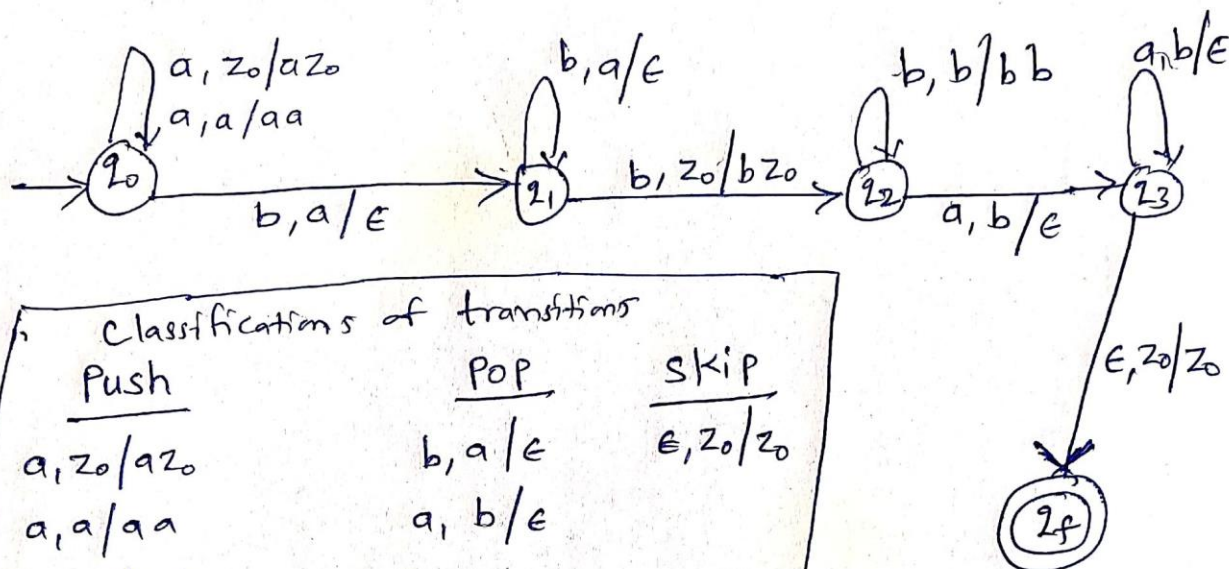 a, z0/az0
a, a/aa
b, a/ϵ
b, b/bb
a, b/ϵ
q0
b, a/ϵ
q1
b, z0/bz0
q2
a, b/ϵ
q3
ϵ, z0/z0
qf
Classifications of transitions
Push POP Skip
a, z0/az0 b, a/ϵ ϵ, z0/z0
a, a/aa a, b/ϵ